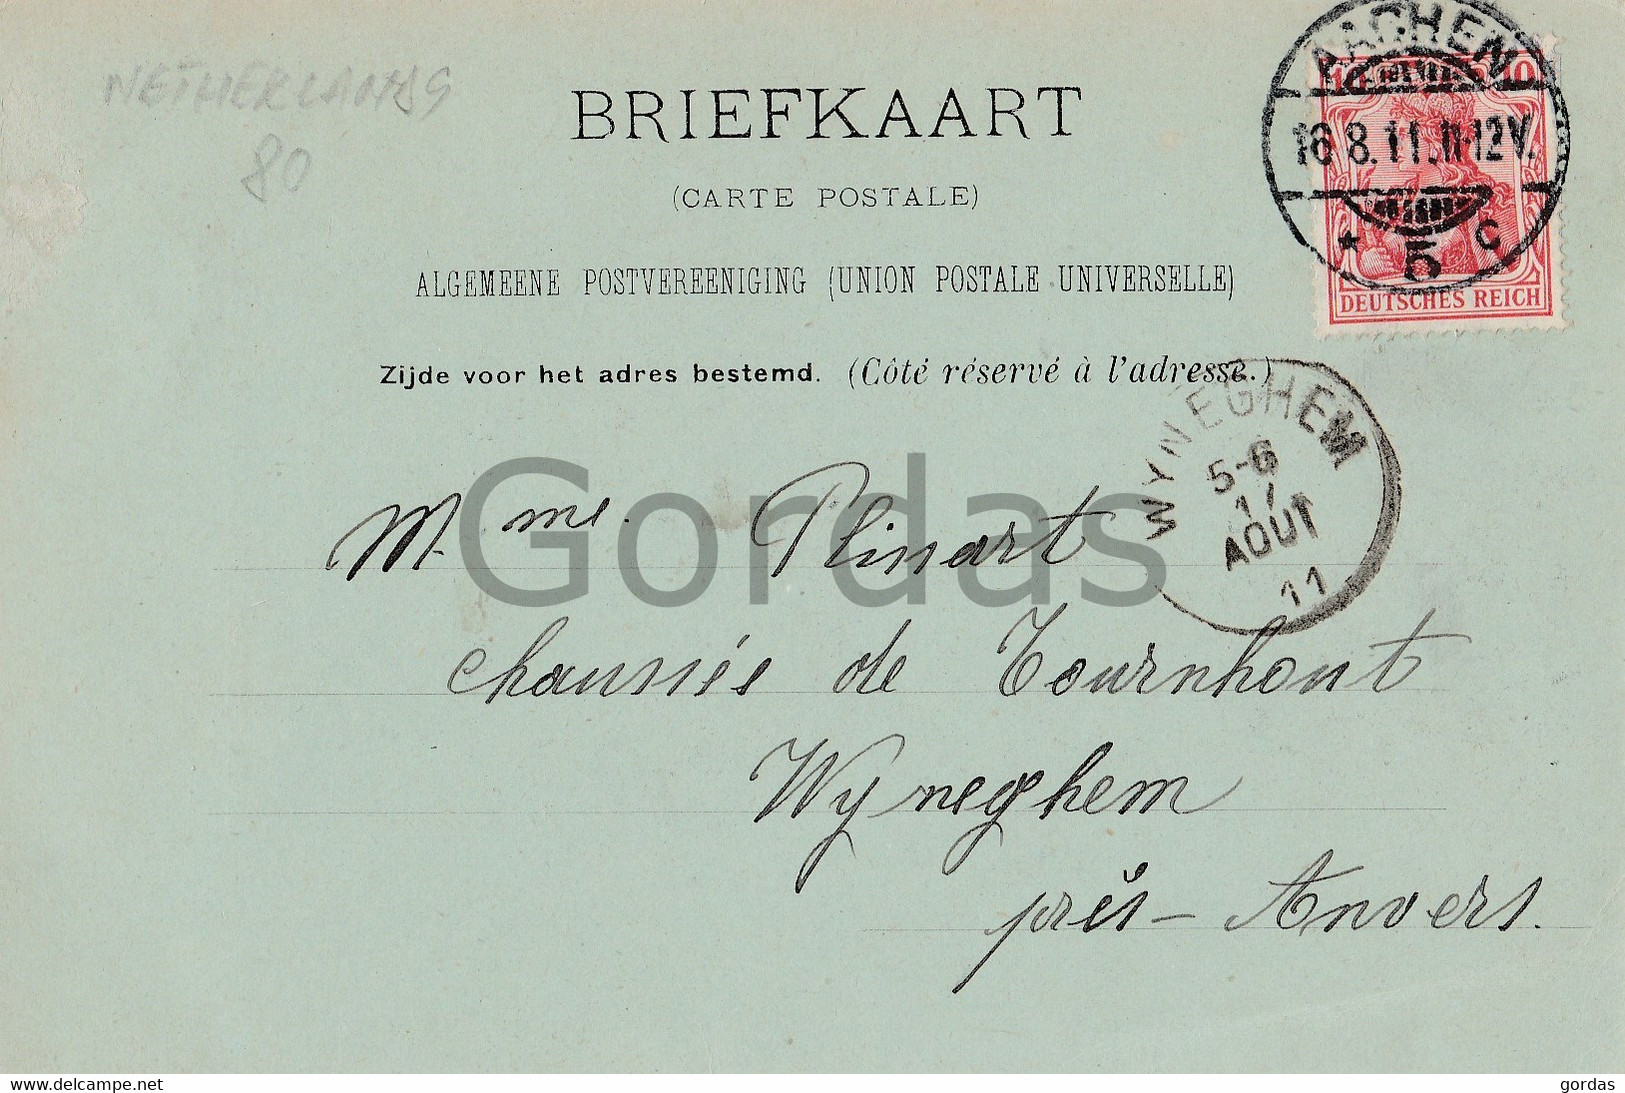 NETHERLANDS
80
BRIEFKAART
(CARTE POSTALE)
ALGEMEENE POSTVEREENIGING (UNION POSTALE UNIVERSELLE)
Zijde voor het adres bestemd. (Côté réservé à l'adresse.)
AACHEN
16.8.11.11-12V.
* 5 c
10 10
DEUTSCHES REICH
WYNEGHEM
5-6
17
AOUT
11
M.me. Plinart
chaussée de Tournhout
Wyneghem
près - Anvers.
Gordas
www.delcampe.net
gordas